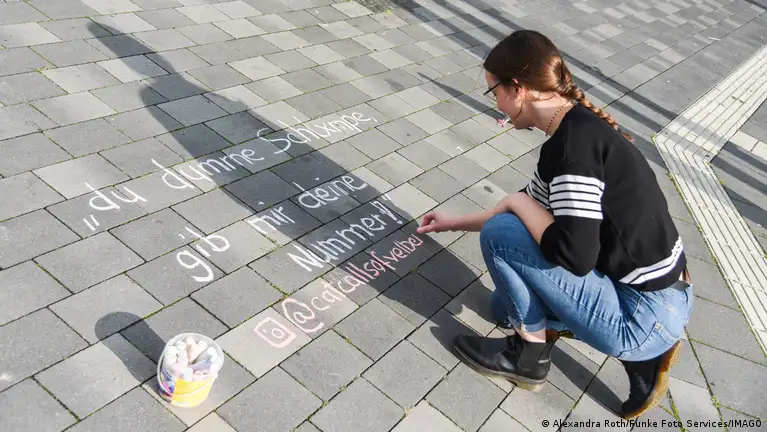 „du dumme Schlxmpe,
gib mir deine
Nummer!"
@catcallsofvelbe
© Alexandra Roth/Funke Foto Services/IMAGO